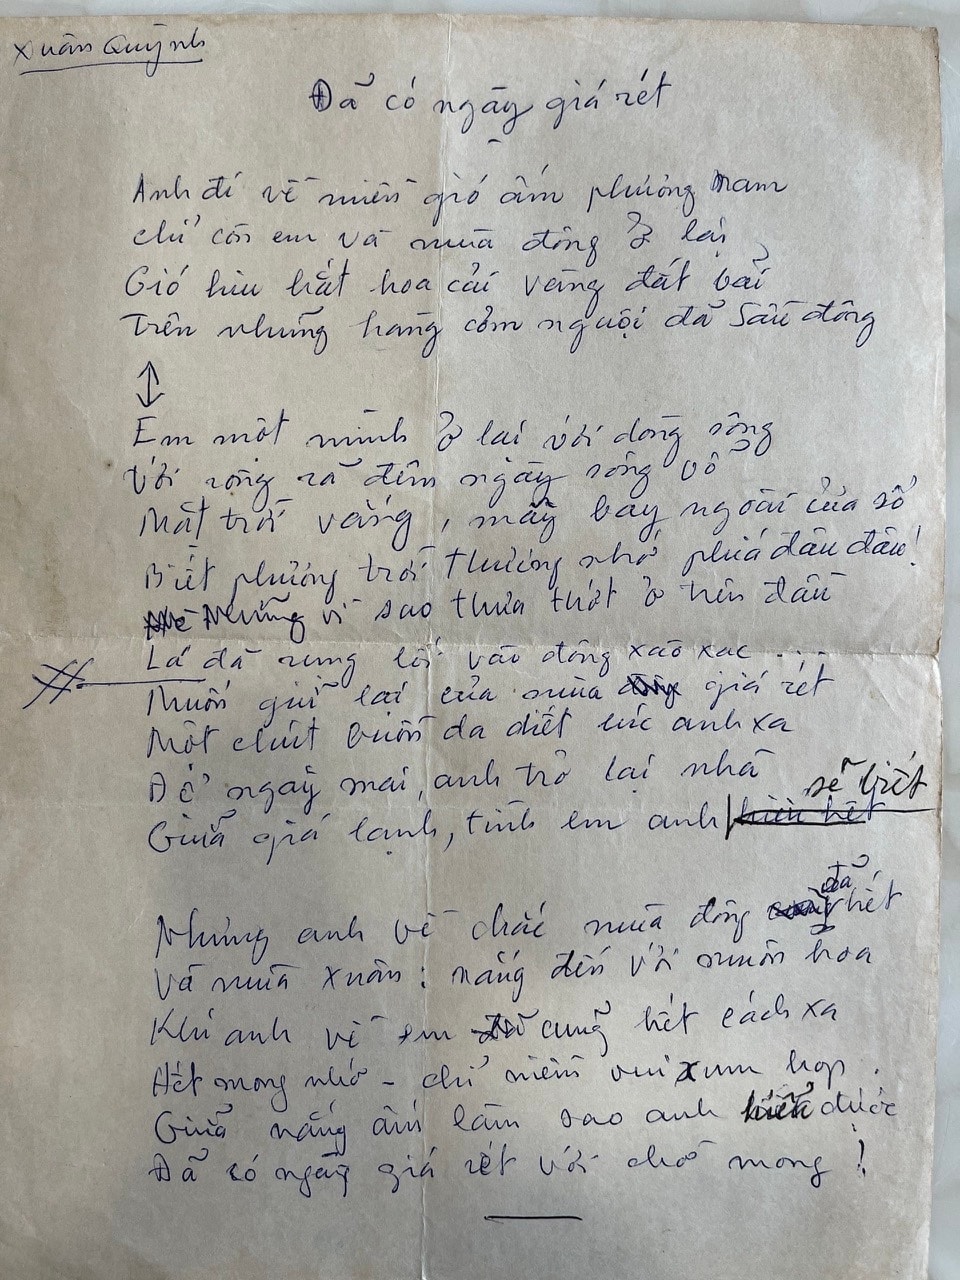 Xuân Quỳnh
Đã có ngày giá rét
Anh đi về miền gió ấm phương Nam
chỉ còn em và mùa đông ở lại
Gió hiu hắt hoa cải vàng đất bãi
Trên những hàng cơm nguội đã sầu đông
Em một mình ở lại với dòng sông
Với ròng rã đêm ngày sóng vỗ
Mặt trời vàng, mây bay ngoài cửa sổ
Biết phương trời thương nhớ phía đâu đâu!
Những vì sao thưa thớt ở trên đầu
Lá đã rụng lối vào đông xào xạc...
Muốn giữ lại của mùa đông giá rét
Một chút buồn da diết lúc anh xa
Để ngày mai, anh trở lại nhà
sẽ biết
Giữa giá lạnh, tình em anh hiểu hết
đã
Nhưng anh về chắc mùa đông hết
Và mùa xuân: nắng đến với muôn hoa
Khi anh về em đã cũng hết cách xa
Hết mong nhớ - chỉ niềm vui xum họp.
Giữa nắng ấm làm sao anh hiểu được
Đã có ngày giá rét với chờ mong!